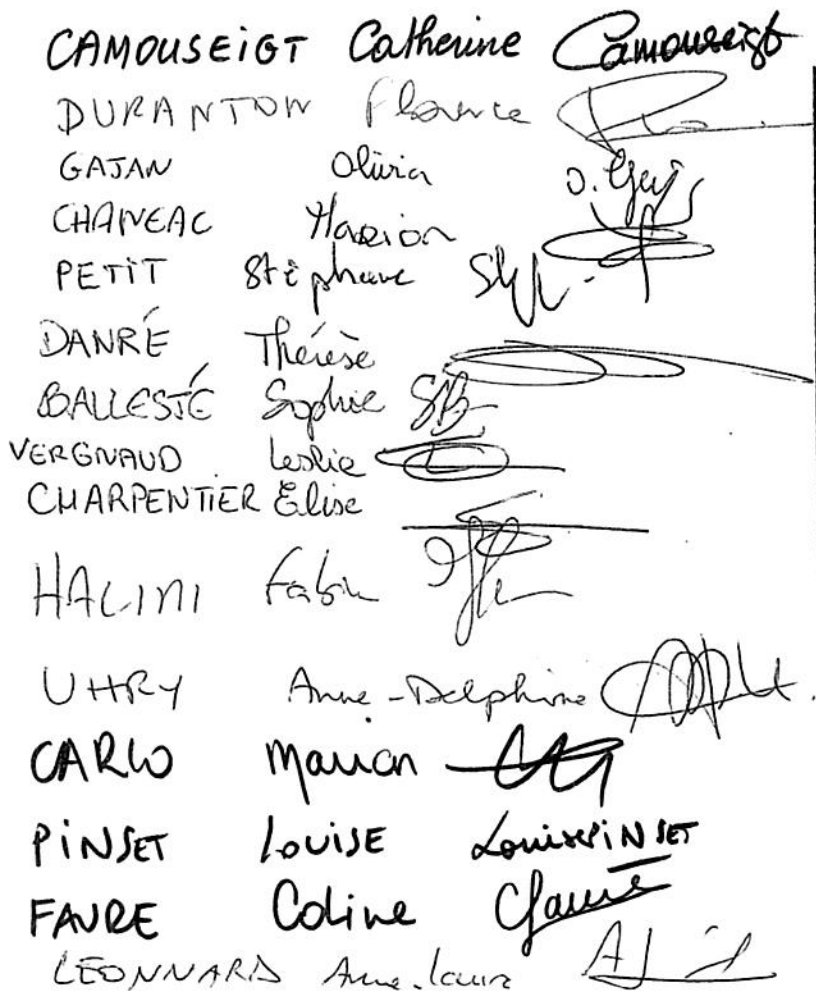 CAMOUSEIGT Catherine Camouseigt
DURANTON Florence
GAJAN Olivia O. Gaj
CHAVEAC Marion
PETIT Stéphane
DANRÉ Thérèse
BALLESTÉ Sophie SB
VERGNAUD Leslie
CHARPENTIER Elise
HALIMI Fabien
UHRY Anne-Delphine
CARLO Marion
PINSET LOUISE Louise PINSET
FAURE Coline CFaure
LEONNARD Anne-Laure